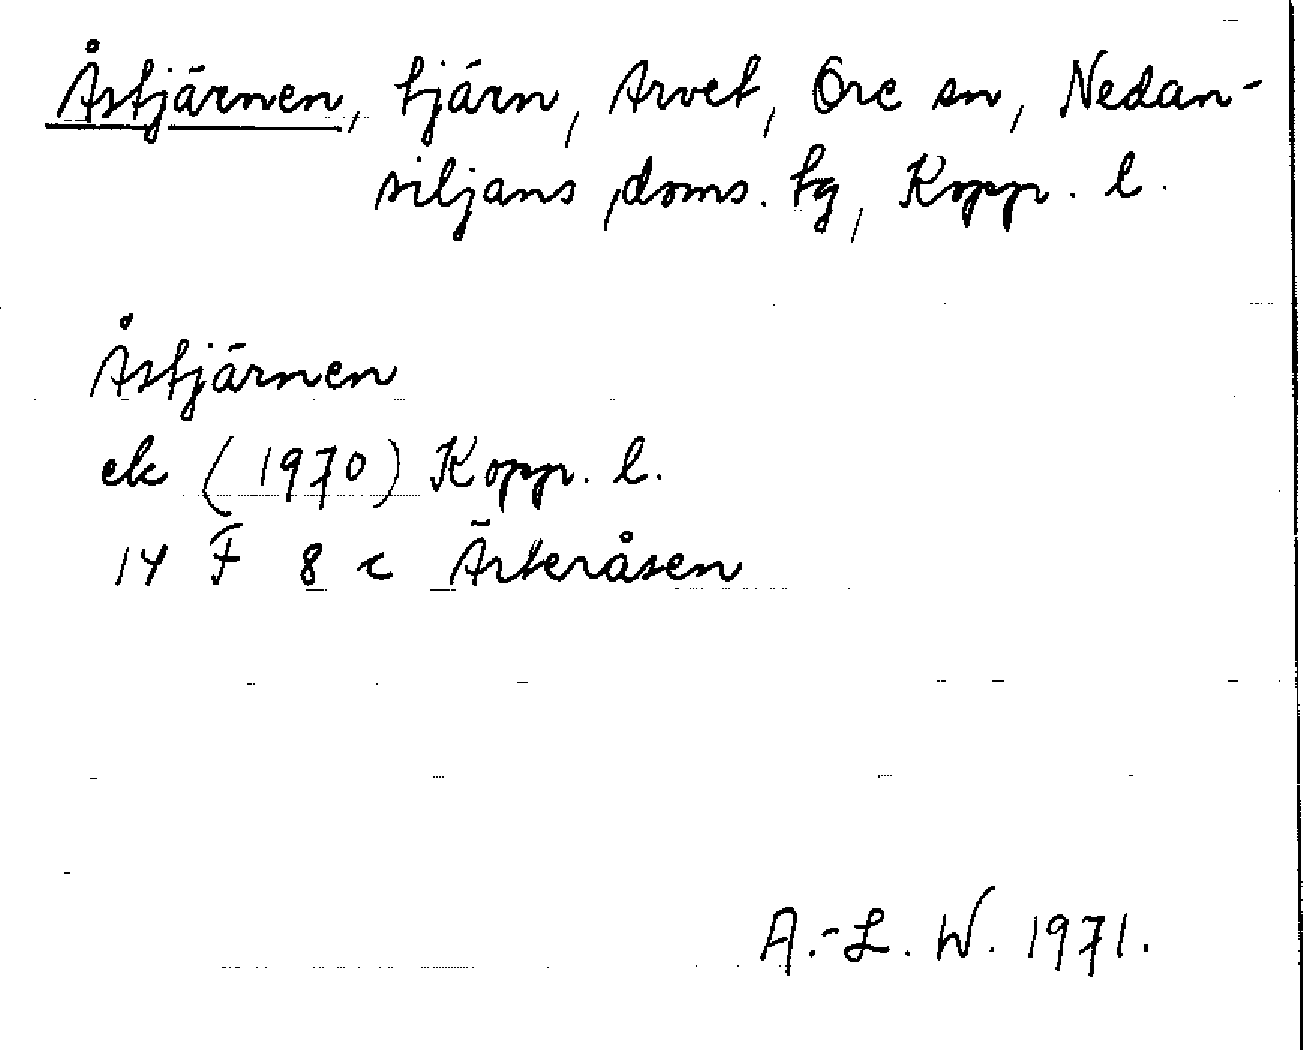 Åstjärnen, tjärn, Arvet, Ore sn, Nedan-
siljans doms. tg, Kopp. l.
Åstjärnen
ek (1970) Kopp. l.
14 F 8 c Ärteråsen
A.-L. W. 1971.